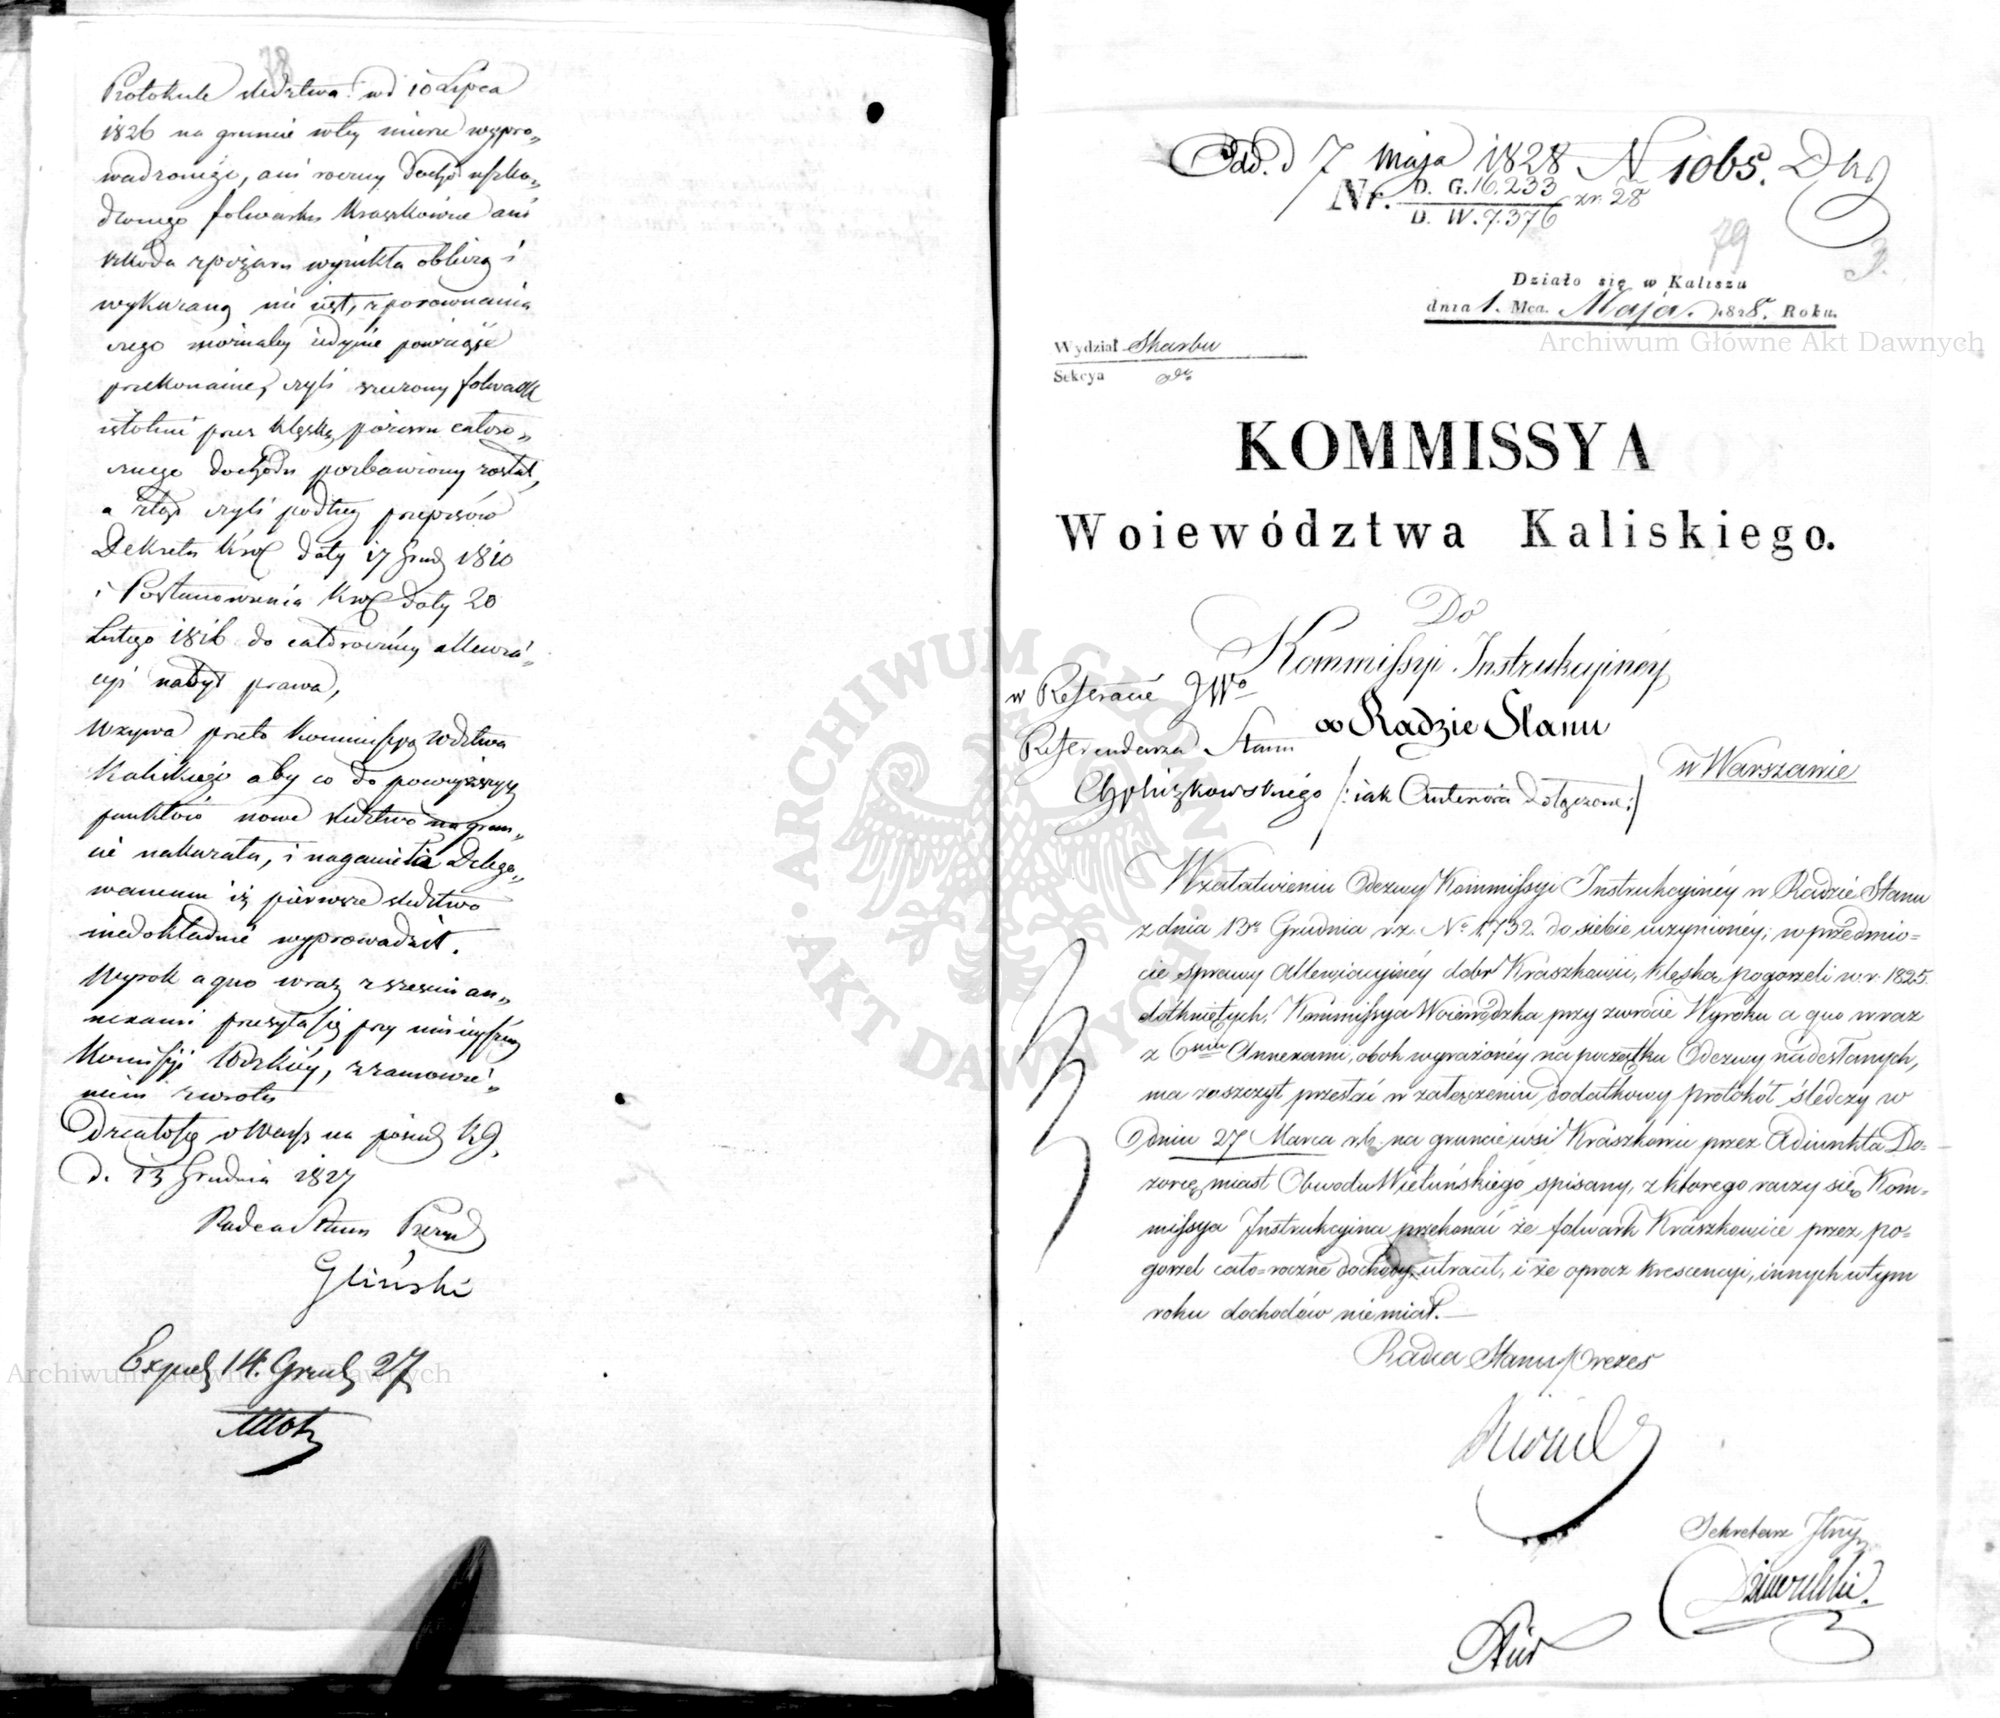 78
Protokule śledztwa od 10 Lipca
1826 na gruncie wtey mierze wypro„
wadzonéy, ani roczny dochód uszko„
dzonego folwarku Kraszkowice ani
szkoda zpożaru wynikła obliczoną i
wykazaną nie iest, zporównania
czego możnaby iedynie powziąść
przekonanie, czyli rzeczony folwark
istotnie przez klęskę pożaru całoro„
cznego dochodu pozbawiony został,
a ztąd czyli podług przepisów
Dekretu Król daty 17 Grud 1810
i Postanowienia Król daty 20
Lutego 1816 do całorocznéy allewia„
cyi nabył prawa,
Wzywa przeto Kommissyą Wdztwa
Kaliskiego aby co do powyższych
punktów nowe śledztwo na grun„
cie nakazała, i naganiła Delego„
wanemu iż pierwsze śledztwo
niedokładnie wyprowadził.
Wyrok a quo wraz z sześcią an„
nexami przesyła się przy niniejszéy
Kommissyi Wdzkiéy, z zamówie„
niem zwrotu
Działo się w Warsz na posied KJ.
d. 13 Grudnia 1827
Radca Stanu Prezyd
Gliński
Exped 14. Grud 27
Odd. d 7 maja 1828 N 1065. D
Nr. D. G. 16.233 / D. W. 7.376 zr. 28
79
3.
Działo się w Kaliszu
dnia 1. Mca. Maja. 1828. Roku.
Wydział Skarbu
Sekcya
KOMMISSYA
Woiewództwa Kaliskiego.
Do
Kommissyi Instrukcyinéy
w Referacie JWo
w Radzie Stanu
Referendarza Stanu
w Warszawie
/: iak Antenora dołączone :/
W załatwieniu Odezwy Kommissyi Instrukcyinéy w Radzie Stanu
z dnia 13go Grudnia r.z. No 1,732. do siebie uczynionéy, w przedmio=
cie sprawy allewiacyinéy dobr Kraszkowic, klęską pogorzeli w r. 1825.
dotkniętych, Kommissya Woiewódzka przy zwrocie Wyroku a quo wraz
z 6ciu Annexami, obok wyrażonéy na początku Odezwy nadesłanych,
ma zaszczyt przesłać w załączeniu dodatkowy protokół śledczy w
Dniu 27 Marca r.b. na gruncie wsi Kraszkowic przez Adiunkta Do=
zorcę miast Obwodu Wieluńskiego spisany, z ktorego raczy się Kom=
missya Instrukcyina przekonać że folwark Kraszkowice przez po=
gorzel cało=roczne dochody utracił, i że oprocz krescencyi, innych w tym
roku dochodów nie miał.—
Radca Stanu Prezes
Sekretarz Jlny
ARCHIWUM GŁÓWNE AKT DAWNYCH
Archiwum Główne Akt Dawnych
Archiwum Główne Akt Dawnych